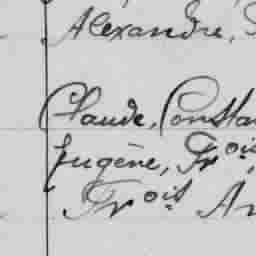 Alexandre,
Claude, Constan
Eugène, Frois,
Frois An